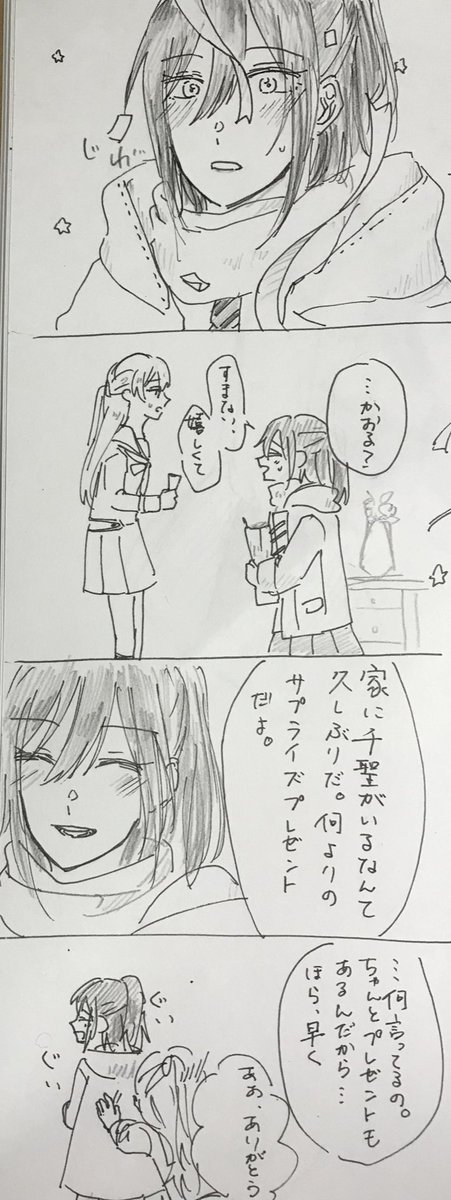 じわ
…かおる？
すまない…
嬉しくて
家に千聖がいるなんて
久しぶりだ。何よりの
サプライズプレゼント
だよ。
…何言ってるの。
ちゃんとプレゼントも
あるんだから…
ほら、早く
ぐい
ぐい
ああ、ありがとう